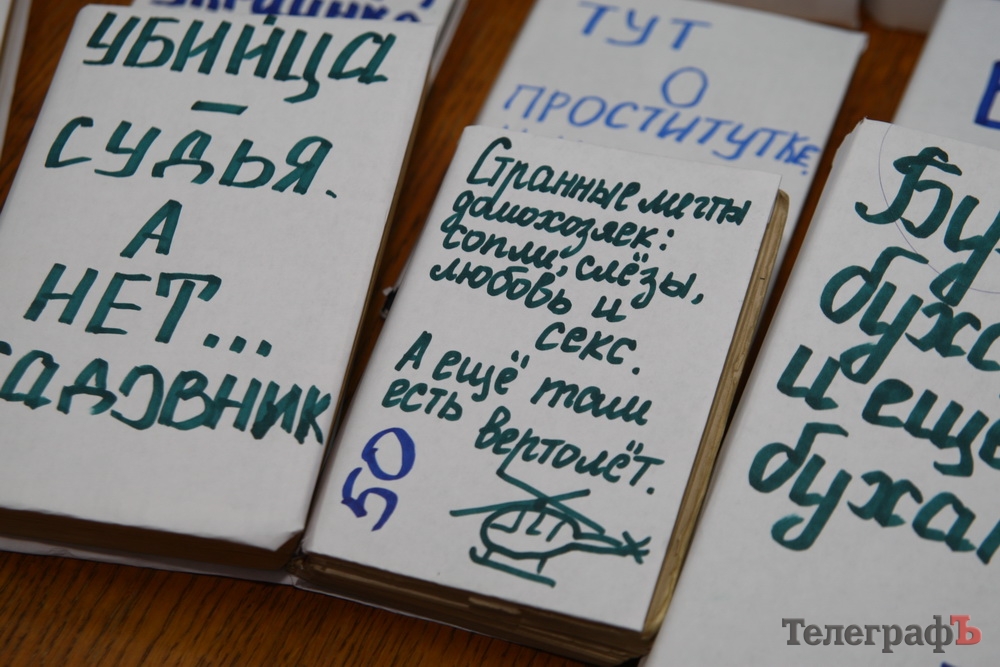 УБИЙЦА
–
СУДЬЯ.
А
НЕТ...
САДОВНИК
ТУТ
О
ПРОСТИТУТКЕ
Странные мечты
домохозяек:
сопли, слёзы,
любовь и
секс.
А ещё там
есть вертолёт.
50
и ещё
ТелеграфЪ